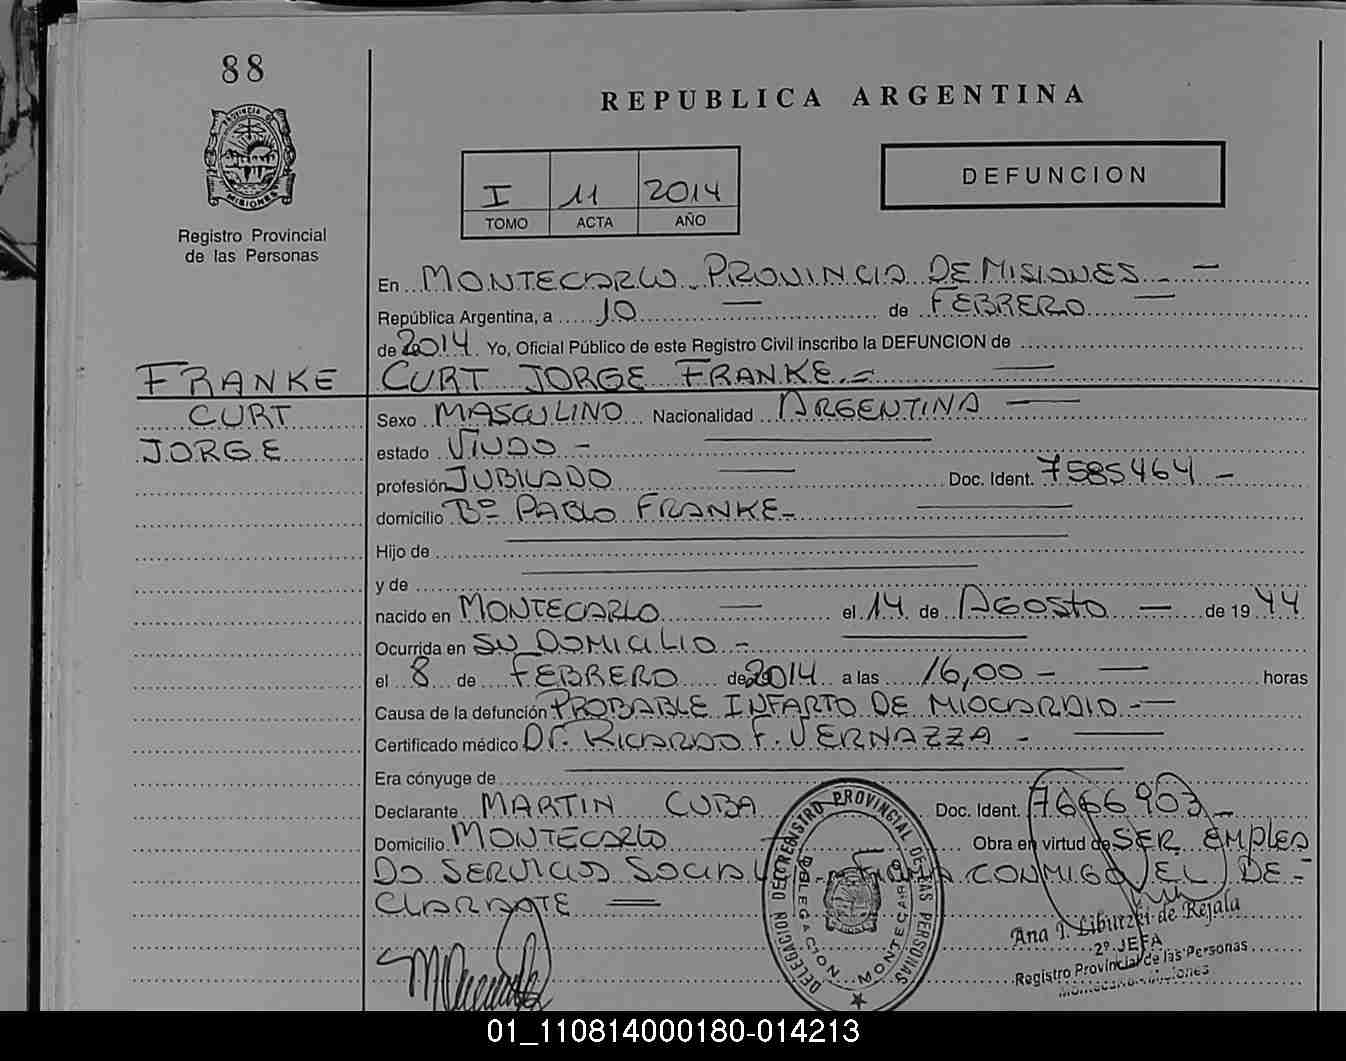 88
PROVINCIA DE
MISIONES
Registro Provincial
de las Personas
REPUBLICA ARGENTINA
I 11 2014
TOMO ACTA AÑO
DEFUNCION
En MONTECARLO - PROVINCIA DE MISIONES -
República Argentina, a 10 de FEBRERO
de 2014 Yo, Oficial Público de este Registro Civil inscribo la DEFUNCION de
FRANKE CURT JORGE FRANKE.=
CURT Sexo MASCULINO Nacionalidad ARGENTINA
JORGE estado VIUDO -
profesión JUBILADO Doc. Ident. 7585464 -
domicilio Bº PABLO FRANKE -
Hijo de
y de
nacido en MONTECARLO el 14 de AGOSTO de 19 44
Ocurrida en SU DOMICILIO -
el 8 de FEBRERO de 2014 a las 16,00 - horas
Causa de la defunción PROBABLE INFARTO DE MIOCARDIO -
Certificado médico Dr. RICARDO F. VERNAZZA -
Era cónyuge de
Declarante MARTIN CUBA Doc. Ident. 7666903 -
Domicilio MONTECARLO Obra en virtud de SER EMPLEA
DO SERVICIOS SOCIAL CONMIGO EL DE-
CLARANTE
DELEGACION DEL REGISTRO PROVINCIAL DE LAS PERSONAS
DELEGACION MONTECARLO
Ana I. Liburzki de Rejala
2º JEFA
Registro Provincial de las Personas
Montecarlo - Misiones
01_110814000180-014213